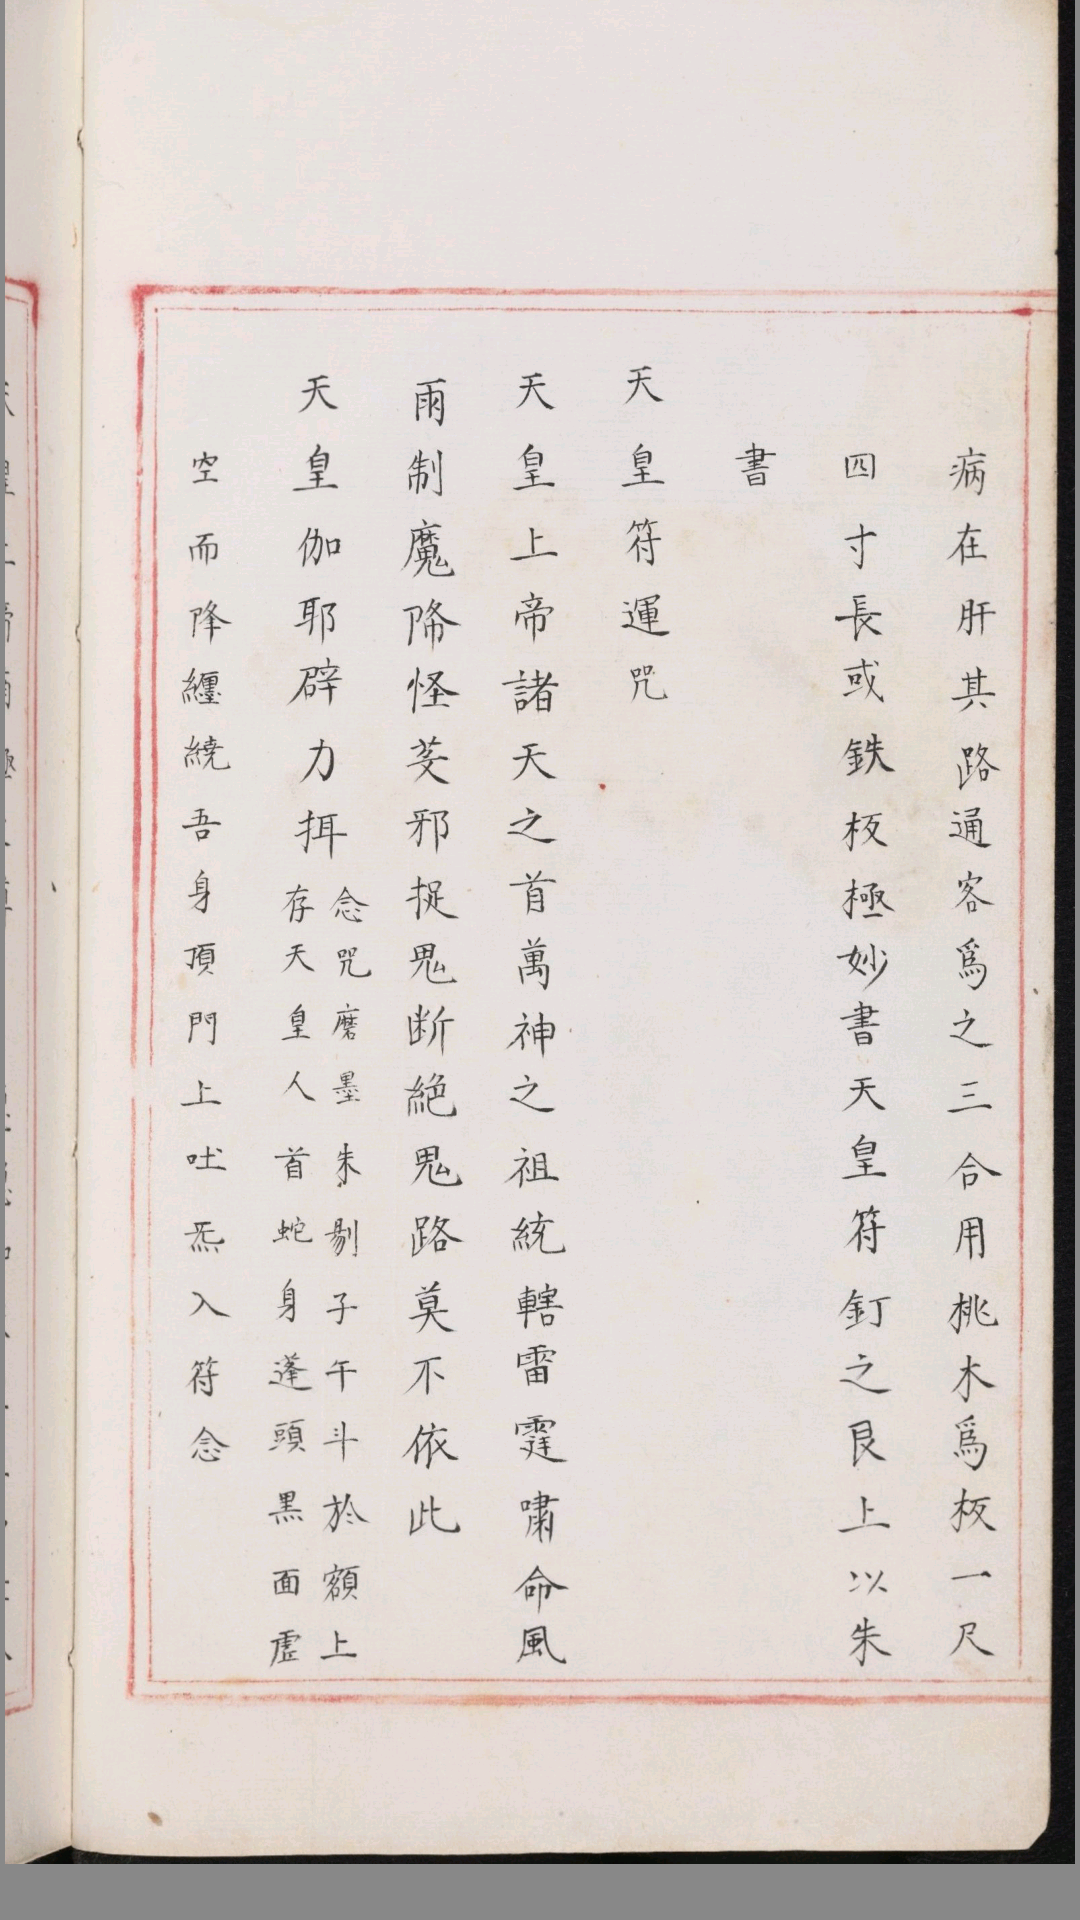 病在肝其路通客爲之三合用桃木爲板一尺
四寸長或鉄板極妙書天皇符釘之艮上以朱
書
天皇符運咒
天皇上帝諸天之首萬神之祖統轄雷霆嘯命風
雨制魔降怪芟邪捉鬼断絕鬼路莫不依此
天皇伽耶辟力挕
念咒磨墨朱剔子午斗於額上
存天皇人首蛇身蓬頭黑面虛
空而降纏繞吾身頂門上吐炁入符念